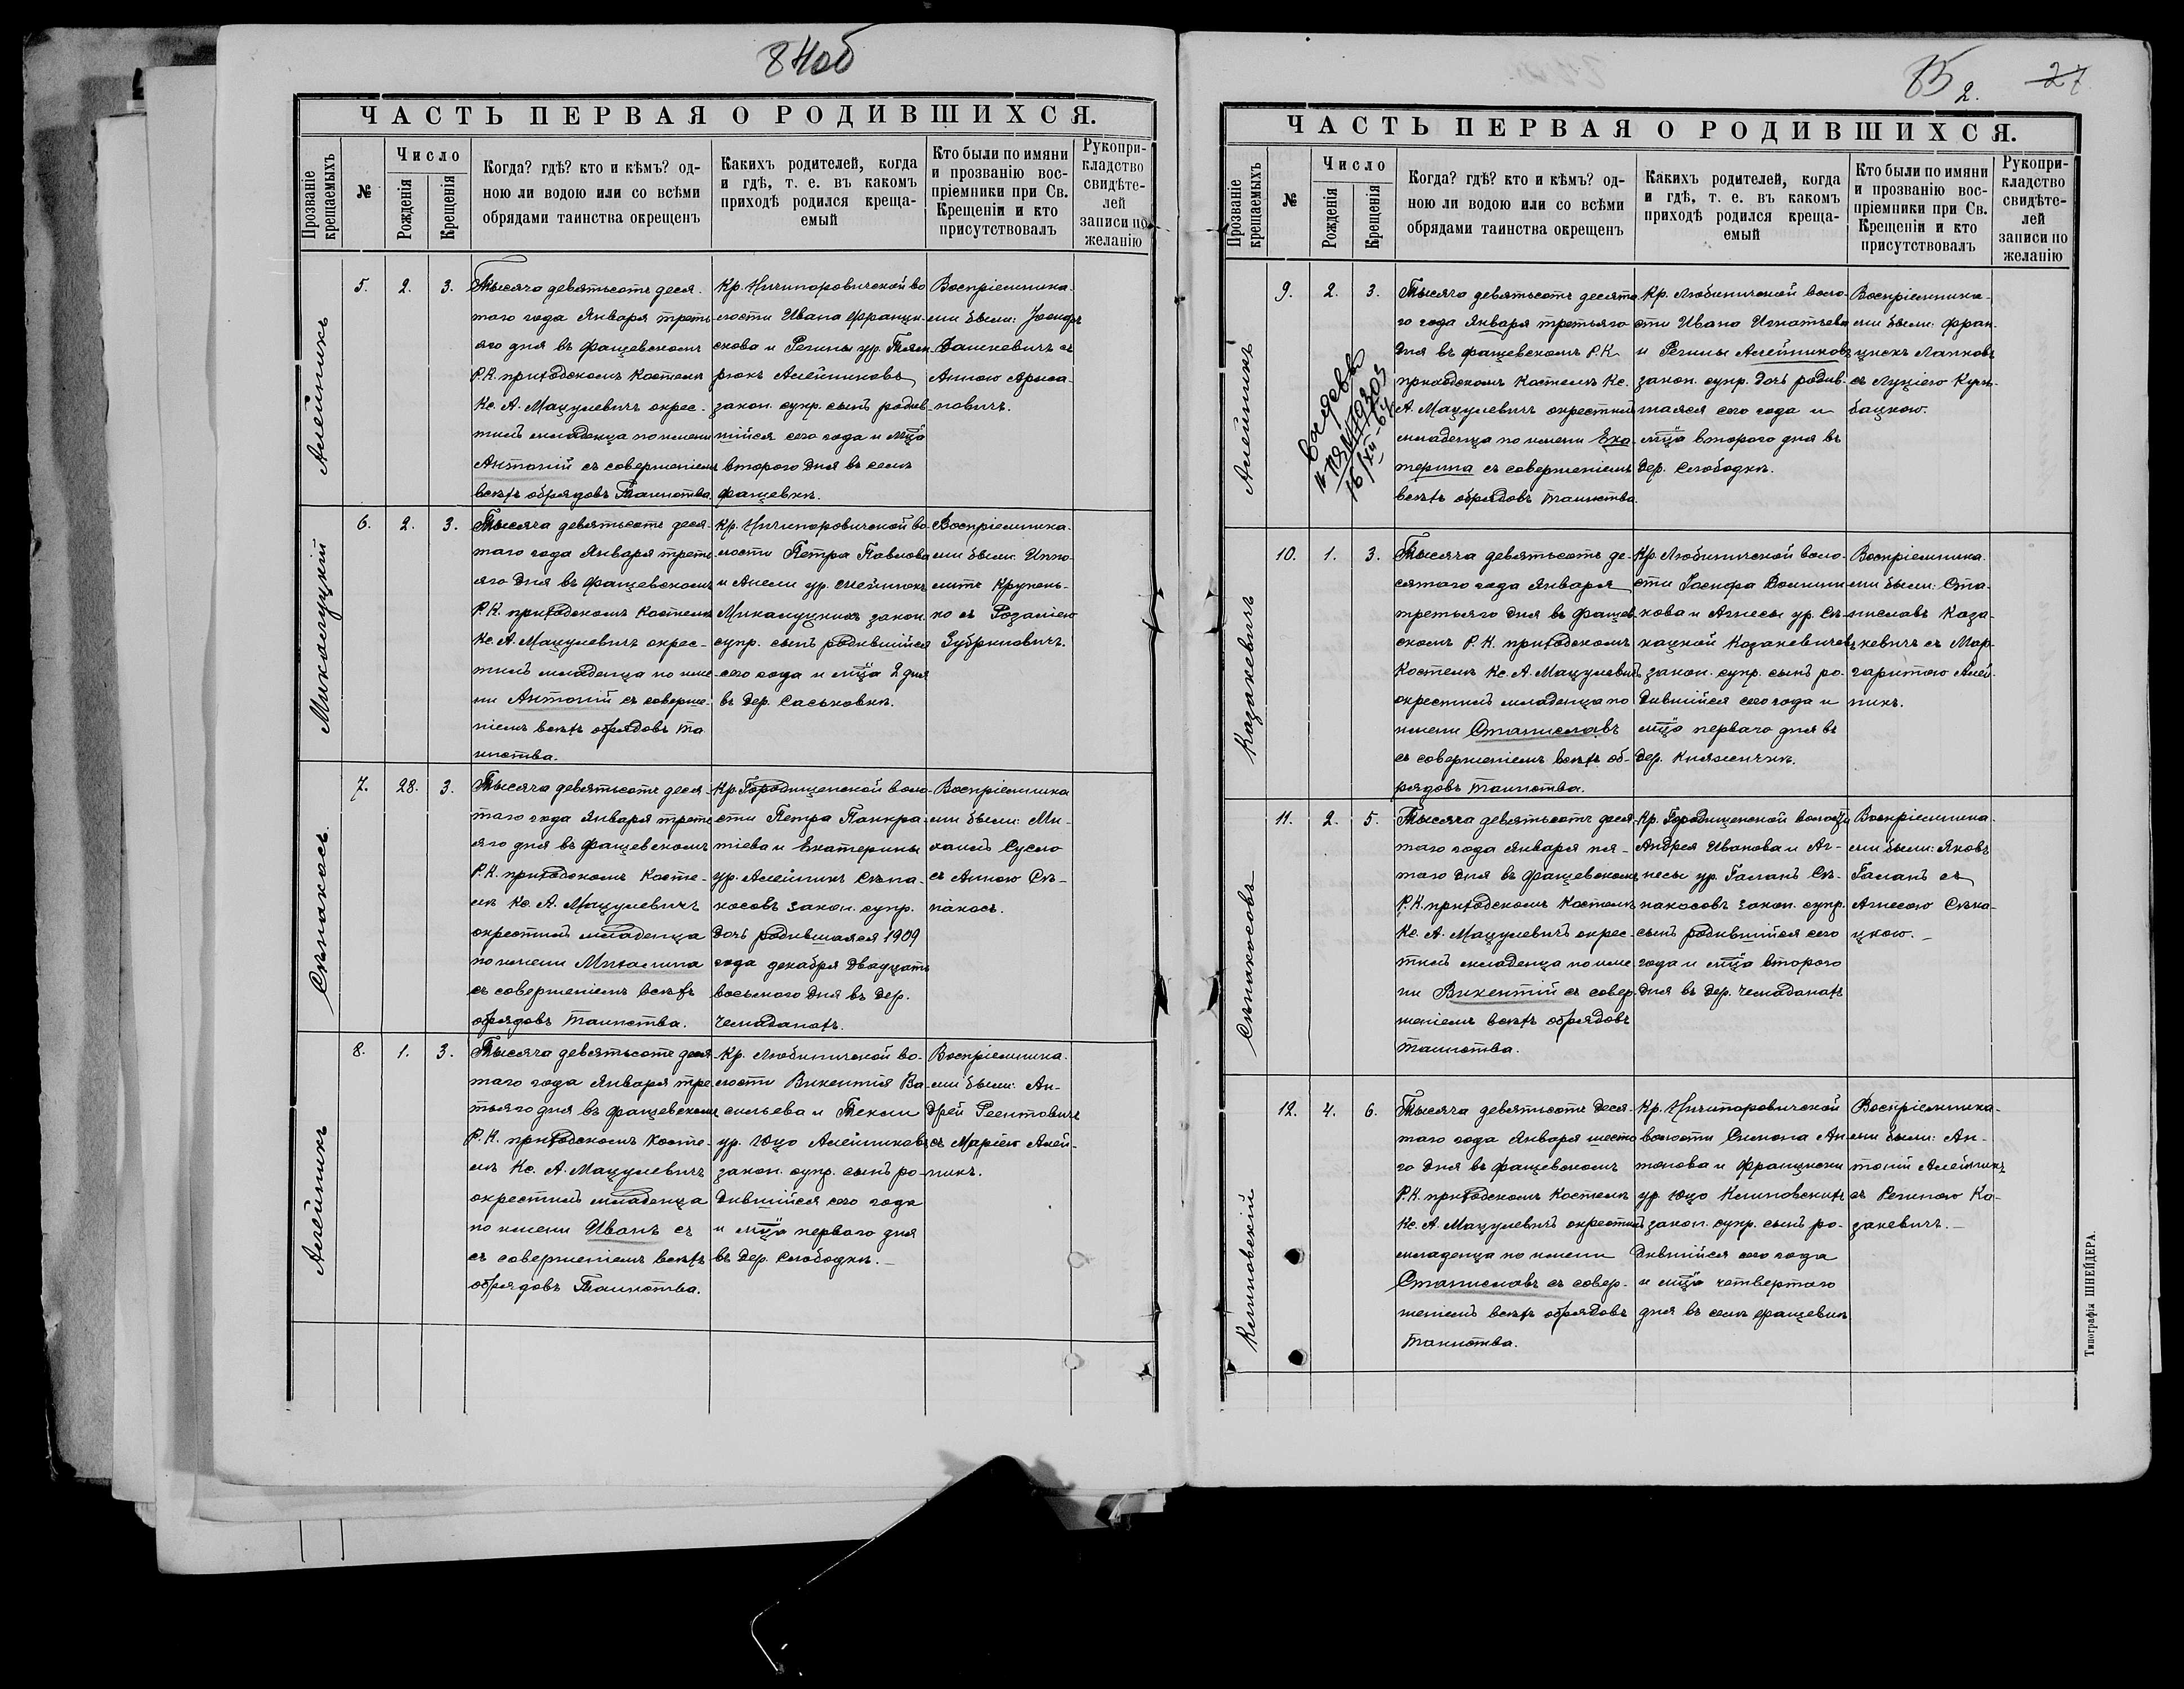 84об
ЧАСТЬ ПЕРВАЯ О РОДИВШИХСЯ.
Прозваніе крещаемыхъ
№
Число
Рожденія
Крещенія
Когда? гдѣ? кто и кѣмъ? од-
ною ли водою или со всѣми
обрядами таинства окрещенъ
Какихъ родителей, когда
и гдѣ, т. е. въ какомъ
приходѣ родился креща-
емый
Кто были по имяни
и прозванію вос-
пріемники при Св.
Крещеніи и кто
присутствовалъ
Рукопри-
кладство
свидѣте-
лей
записи по
желанію
Алейникъ
5.
2.
3.
Тысяча девятьсотъ деся-
таго года Января треть-
яго дня въ Фащевскомъ
Р.К. приходскомъ костелѣ
Кс. А. Мацулевичъ окрес-
тилъ младенца по имени
Антоній съ совершеніемъ
всѣхъ обрядовъ Таинства.
Кр. Ничипоровичской во
лости Ивана Францис-
кова и Регины ур.
Алейниковъ
закон. супр. сынъ родив-
шійся сего года и мца
второго дня въ селѣ
Фащевкѣ.
Воспріемника-
ми были: Іосифъ
Дашкевичъ съ
Анною Ярмо-
повичъ.
Микалуцкій
6.
2.
3.
Тысяча девятьсотъ деся-
таго года Января треть-
яго дня въ Фащевскомъ
Р.К. приходскомъ костелѣ
Кс. А. Мацулевичъ окрес-
тилъ младенца по име-
ни Антоній съ соверше-
ніемъ всѣхъ обрядовъ та
инства.
Кр. Ничипоровичской во-
лости Петра Павлова
и Анели ур. Алейникъ
Микалуцкихъ закон.
супр. сынъ родившійся
сего года и мца 2 дня
въ дер. Саськовкѣ.
Воспріемника-
ми были: Иппо-
литъ Крупень-
ко съ Розаліею
Зубриновичъ.
Сѣнакосъ
7.
28.
3.
Тысяча девятьсотъ деся-
таго года Января треть
яго дня въ Фащевскомъ
Р.К. приходскомъ косте-
лѣ Кс. А. Мацулевичъ
окрестилъ младенца
по имени Михалина
съ совершеніемъ всѣхъ
обрядовъ Таинства.
Кр. Городищенской воло-
сти Петра Панкра-
тіева и Екатерины
ур. Алейникъ Сѣна-
косовъ закон. супр.
дочь родившаяся 1909
года декабря двадцать
восьмого дня въ дер.
Чемаданахъ.
Воспріемника
ми были: Ми-
хаилъ Сусло
съ Анною Сѣ-
накосъ.
Алейникъ
8.
1.
3.
Тысяча девятьсотъ деся-
таго года Января тре-
тьяго дня въ Фащевскомъ
Р.К. приходскомъ косте-
лѣ Кс. А. Мацулевичъ
окрестилъ младенца
по имени Иванъ съ
съ совершеніемъ всѣхъ
обрядовъ Таинства.
Кр. Любиничской во-
лости Викентія Ва-
сильева и Теклі
ур. Юцо Алейниковъ
закон. супр. сынъ ро-
дившійся сего года
и мца перваго дня
въ дер. Слободкѣ.
Воспріемника-
ми были: Ан-
дрей Реентовичъ
съ Маріею Алей-
никъ.
85
2.
27
ЧАСТЬ ПЕРВАЯ О РОДИВШИХСЯ.
Прозваніе крещаемыхъ
№
Число
Рожденія
Крещенія
Когда? гдѣ? кто и кѣмъ? од-
ною ли водою или со всѣми
обрядами таинства окрещенъ
Какихъ родителей, когда
и гдѣ, т. е. въ какомъ
приходѣ родился креща-
емый
Кто были по имяни
и прозванію вос-
пріемники при Св.
Крещеніи и кто
присутствовалъ
Рукопри-
кладство
свидѣте-
лей
записи по
желанію
Алейникъ
9.
2.
3.
16/XII-64
Тысяча девятьсотъ десята
го года Января третьяго
дня въ Фащевскомъ Р.К.
приходскомъ костелѣ Кс.
А. Мацулевичъ окрестилъ
младенца по имени Ека-
терина съ совершеніемъ
всѣхъ обрядовъ таинства.
Кр. Любиничской воло-
сти Ивана Игнатьева
и Регины Алейниковъ
закон. супр. дочь родив-
шаяся сего года и
мца второго дня въ
дер. Слободкѣ.
Воспріемника-
ми были: Фран-
цискъ Лапковъ
съ Луціею Куль-
бацкою.
Казакевичъ
10.
1.
3.
Тысяча девятьсотъ де-
сятаго года Января
третьяго дня въ Фащев-
скомъ Р.К. приходскомъ
костелѣ Кс. А. Мацулевичъ
окрестилъ младенца по
имени Станиславъ
съ совершеніемъ всѣхъ об-
рядовъ Таинства.
Кр. Любиничской воло-
сти Іосифа Домини
кова и Агнесы ур. Сѣ-
кацкой Казакевичевъ
закон. супр. сынъ ро-
дившійся сего года и
мца перваго дня въ
дер. Княжичкѣ.
Воспріемника
ми были: Ста-
ниславъ Каза-
кевичъ съ Мар-
гаритою Алей-
никъ.
Сѣнакосовъ
11.
2.
5.
Тысяча девятьсотъ деся-
таго года Января пя-
таго дня въ Фащевскомъ
Р.К. приходскомъ костелѣ
Кс. А. Мацулевичъ окрес-
тилъ младенца по име-
ни Викентій съ совер-
шеніемъ всѣхъ обрядовъ
Таинства.
Кр. Городищенской волости
Андрея Иванова и Аг-
несы ур. Галанъ Сѣ-
накосовъ закон. супр.
сынъ родившійся сего
года и мца второго
дня въ дер. Чемаданахъ
Воспріемника-
ми были: Яковъ
Галанъ съ
Агнесою Сѣка-
цкою.
Климовскій
12.
4.
6.
Тысяча девятьсотъ деся-
таго года Января шесто
го дня въ Фащевскомъ
Р.К. приходскомъ костелѣ
Кс. А. Мацулевичъ окрестилъ
младенца по имени
Станиславъ съ совер-
шеніемъ всѣхъ обрядовъ
Таинства.
Кр. Ничипоровичской
волости Симона Ан
тонова и Францишки
ур. Юцо Климовскихъ
закон. супр. сынъ ро-
дившійся сего года
и мца четвертаго
дня въ селѣ Фащевкѣ
Воспріемника-
ми были: Ан-
тоній Алейникъ
съ Региною Ка-
закевичъ.
Типографія ШНЕЙДЕРА.